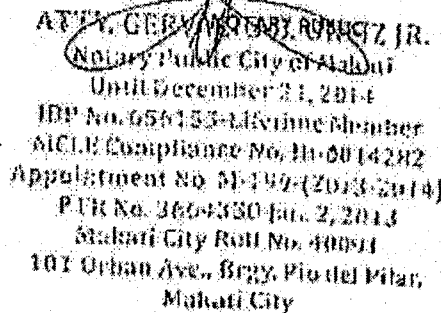 ATTY. GERV ORTIZ JR.
NOTARY PUBLIC
Notary Public City of Makati
Until December 31, 2014
IBP No. 656155-Lifetime Member
MCLE Compliance No. III-0014282
Appointment No. M-199-(2013-2014)
PTR No. 3664330 Jan. 2, 2013
Makati City Roll No. 40091
101 Urban Ave., Brgy. Pio del Pilar,
Makati City